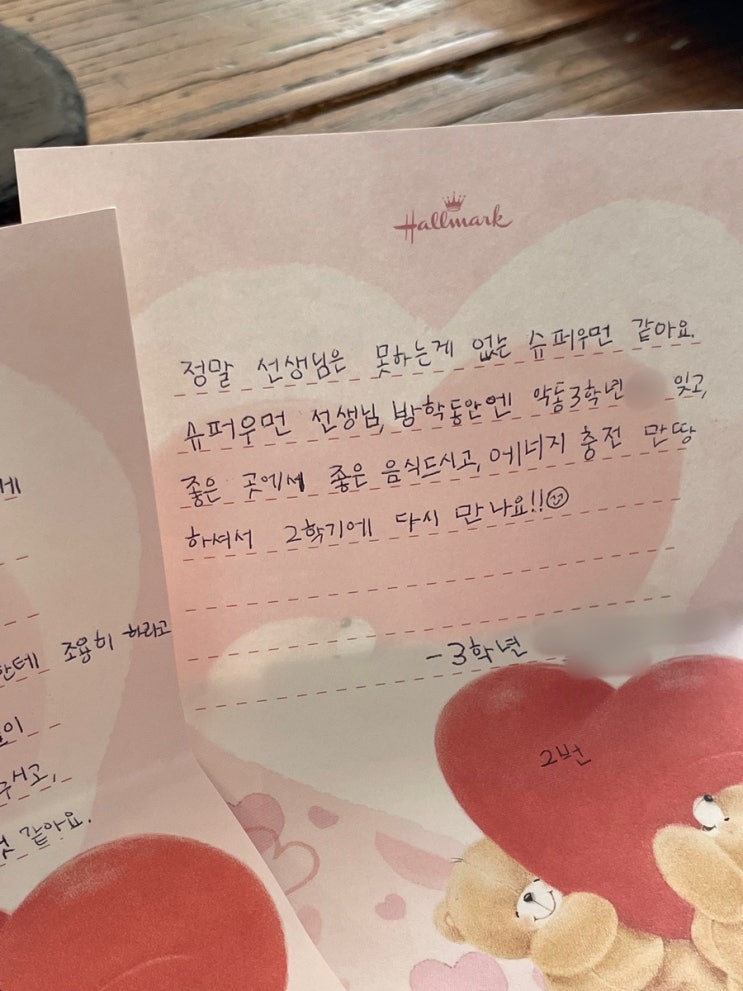 Hallmark
정말 선생님은 못하는게 없는 슈퍼우먼 같아요.
슈퍼우먼 선생님, 방학동안엔 악동3학년 잊고,
좋은 곳에서 좋은 음식드시고, 에너지 충전 만땅
하셔서 2학기에 다시 만나요!!☺
-3학년
2번
조용히 하라고
같아요.